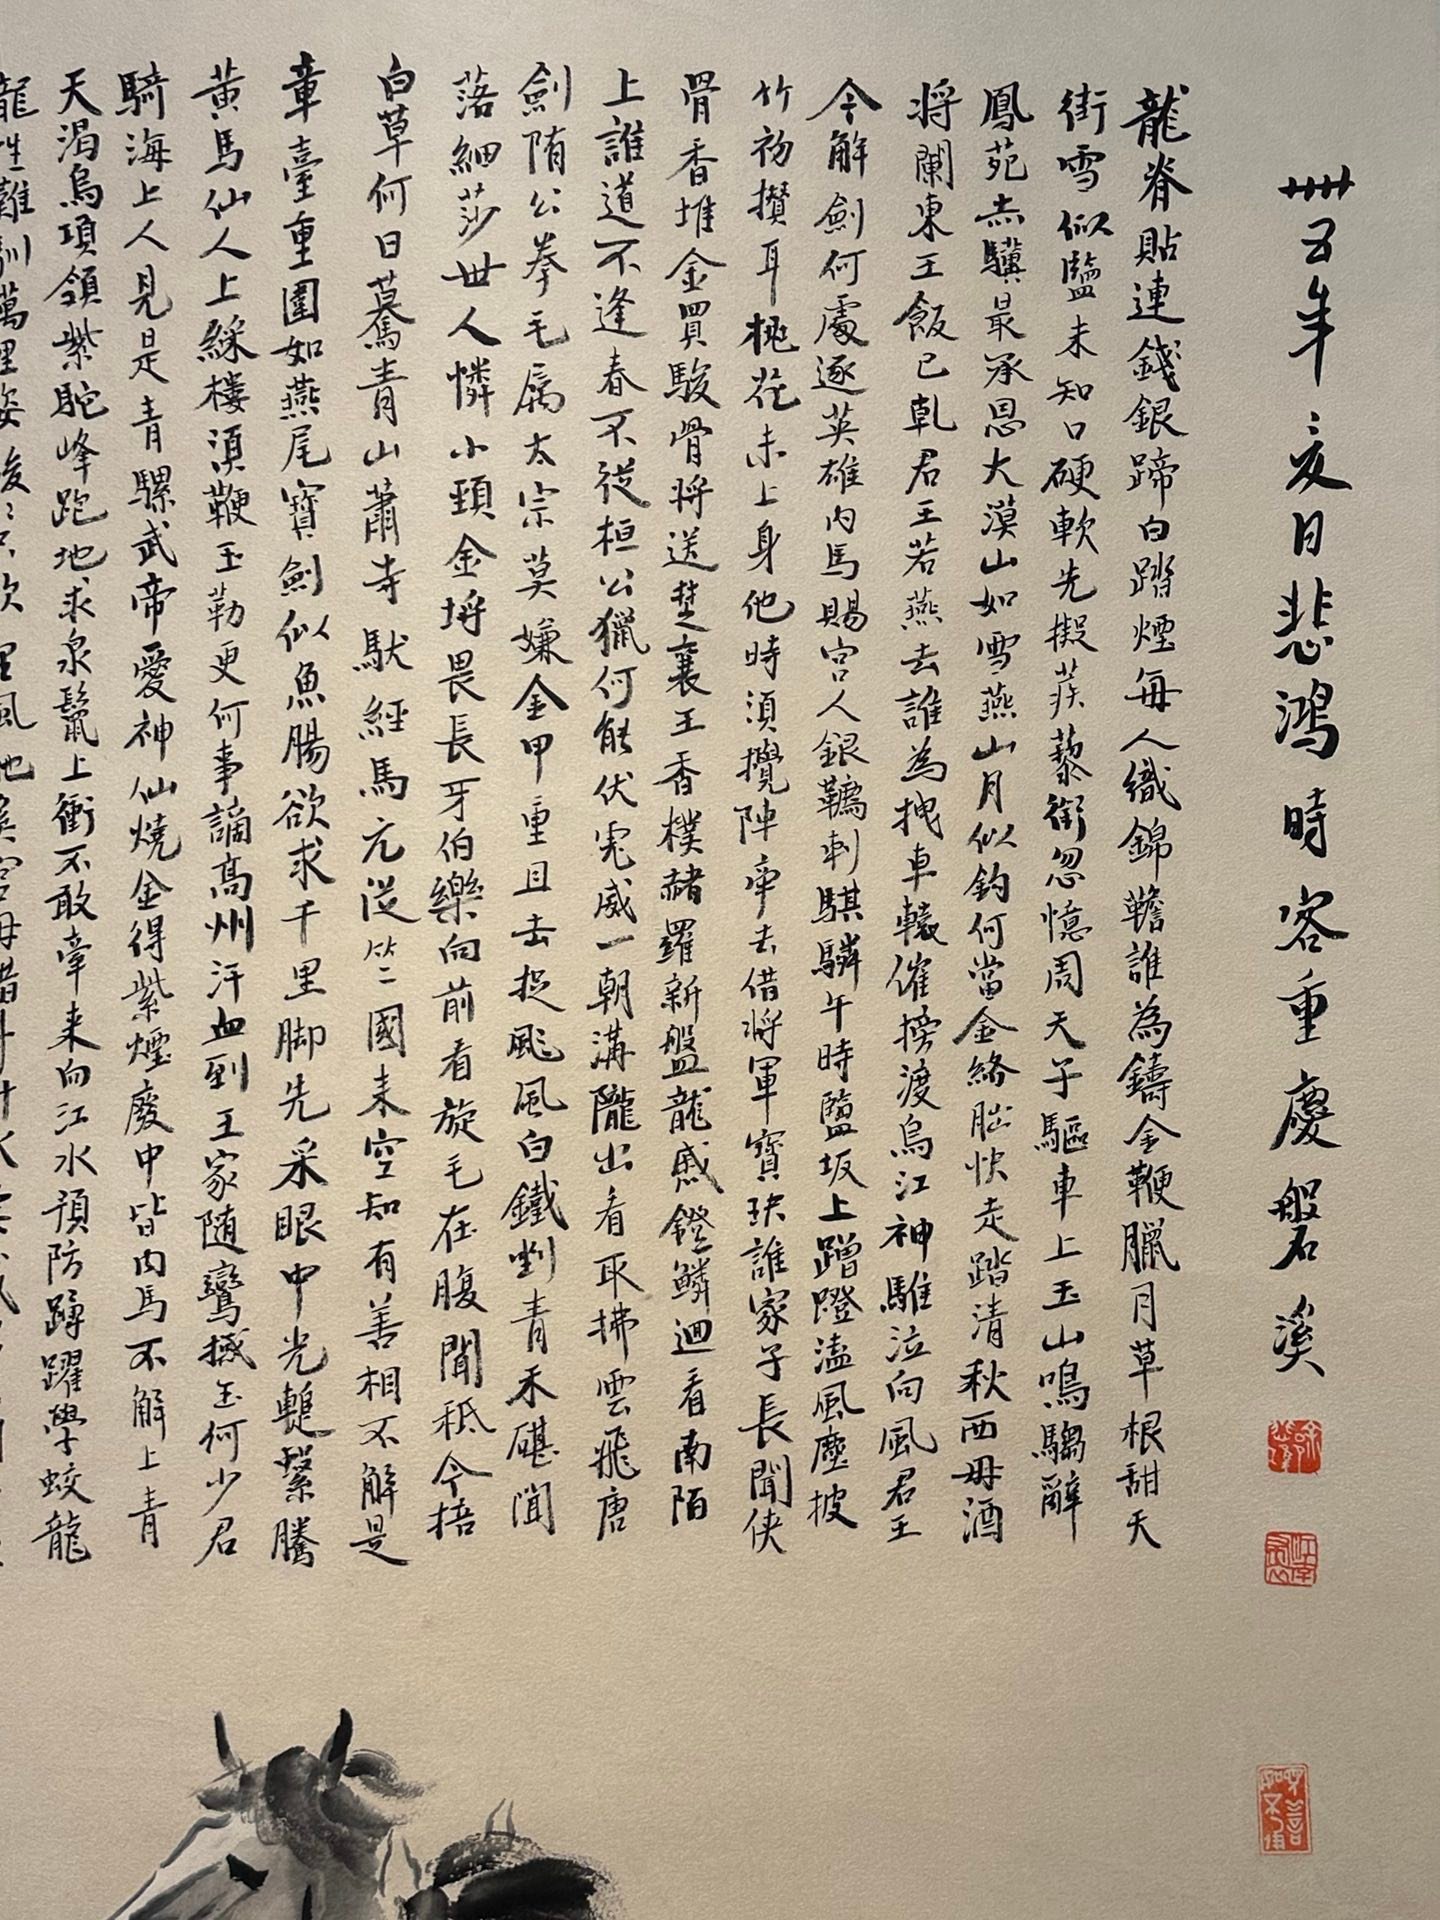 卅五年夏日悲鴻時客重慶磐溪
龍脊貼連錢銀蹄白踏煙無人織錦韂誰為鑄金鞭臘月草根甜天
街雪似鹽未知口硬軟先擬蒺藜銜忽憶周天子驅車上玉山鳴騶辭
鳳苑赤驥最承恩大漠山如雪燕山月似鈎何當金絡腦快走踏清秋西母酒
將闌東王飯已乾君王若燕去誰為拽車轅催搒渡烏江神騅泣向風君王
今解劍何處逐英雄內馬賜宮人銀韉刺騏驎午時鹽坂上蹭蹬溘風塵披
竹初攢耳桃花未上身他時須攪陣牽去借將軍寶玦誰家子長聞俠
骨香堆金買駿骨將送楚襄王香樸赭羅新盤龍蹙鐙鱗迴看南陌
上誰道不逢春不從桓公獵何能伏虎威一朝溝隴出看取拂雲飛唐
劍隋公拳毛屬太宗莫嫌金甲重且去捉飈風白鐵剉青禾碪聞
落細莎世人憐小頸金埒畏長牙伯樂向前看旋毛在腹間秪今掊
白草何日驀青山蕭寺馱經馬元從竺國來空知有善相不解是
章臺重圍如燕尾寶劍似魚腸欲求千里脚先采眼中光蹔繫騰
黃馬仙人上綵樓須鞭玉勒更何事謫高州汗血到王家隨鸞撼玉何少君
騎海上人見是青騾武帝愛神仙燒金得紫煙廄中皆肉馬不解上青
天渴烏項領紫駝峰跑地求泉鬣上衝不敢牽来向江水預防蹲躍學蛟龍
龍性難馴萬里姿